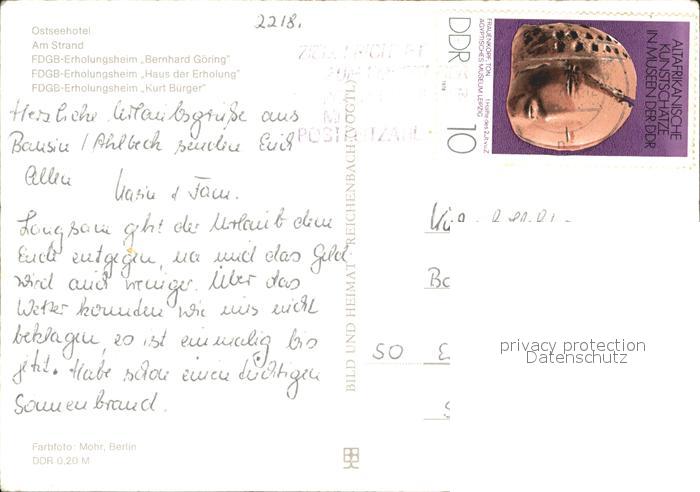 2218.
Ostseehotel
Am Strand
FDGB-Erholungsheim „Bernhard Göring"
FDGB-Erholungsheim „Haus der Erholung"
FDGB-Erholungsheim „Kurt Bürger"
Herzliche Urlaubsgrüße aus
Bansin / Ahlbeck senden Euch
Allen
Karin & Fam.
Langsam geht der Urlaub dem
Ende entgegen, na und das Geld
wird auch weniger. Über das
Wetter konnten wir uns nicht
beklagen, es ist einmalig bis
jetzt. Habe schon einen tüchtigen
Sonnenbrand.
Farbfoto: Mohr, Berlin
DDR 0,20 M
BILD UND HEIMAT · REICHENBACH (VOGTL)
POSTLEITZAHL
DDR
10
FRAUENKOPF, TON
ÄGYPTISCHES MUSEUM LEIPZIG
1978
ALTAFRIKANISCHE
KUNSTSCHÄTZE
IN MUSEEN DER DDR
50
privacy protection
Datenschutz